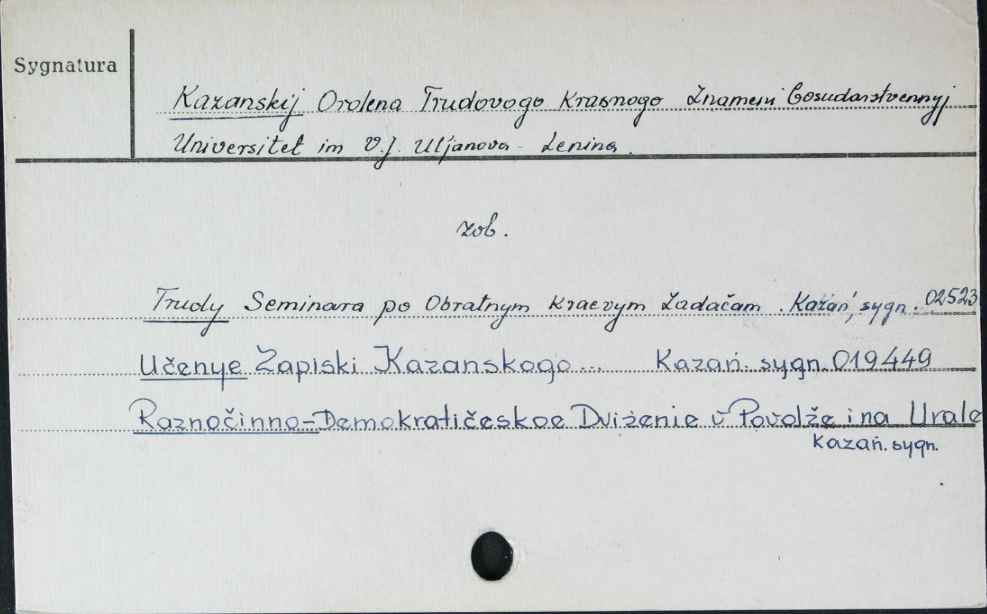 Sygnatura
Kazanskij Ordena Trudovogo Krasnogo Znameni Gosudarstvennyj
Universitet im V.J. Uljanova - Lenina.
zob.
Trudy Seminara po Obratnym Kraevym Zadačam. Kazań, sygn. 02523
Učenye Zapiski Kazanskogo... Kazań. sygn. 019449
Raznočinno-Demokratičeskoe Dviženie v Povolže i na Urale
Kazań. sygn.